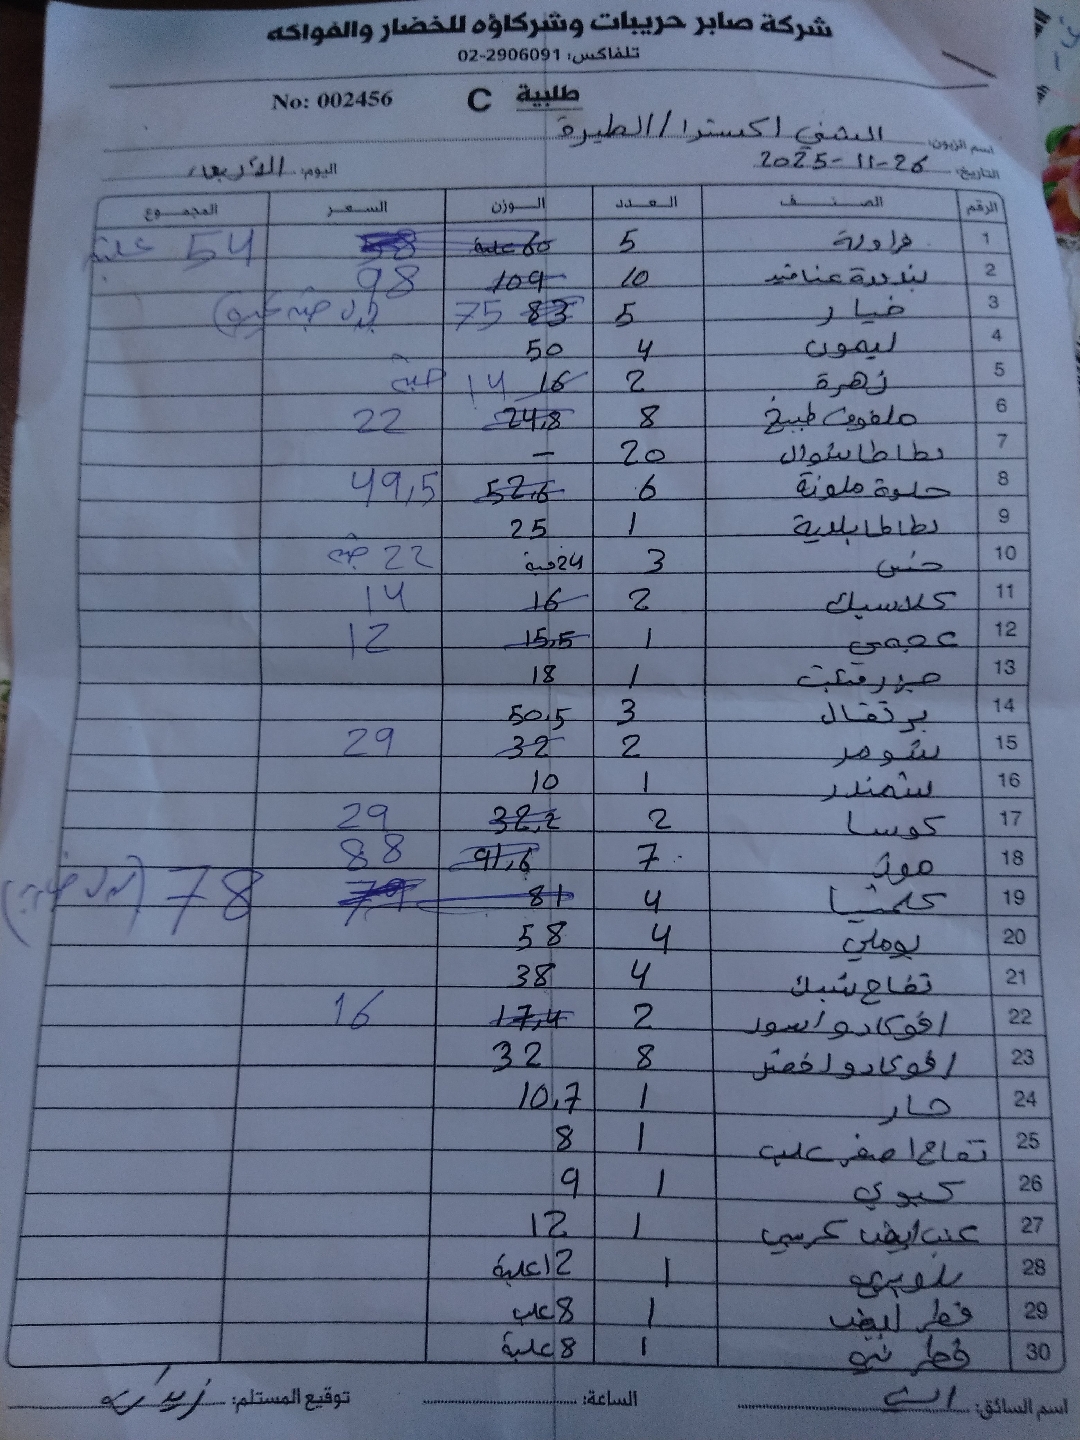 شركة صابر حريبات وشركاؤه للخضار والفواكه
تلفاكس: 2906091-02
No: 002456 C طلبية
اسم الزبون: الشني اكسترا / الطيرة
التاريخ: 26-11-2025 اليوم: الأربعاء
الرقم الصنف العدد الوزن السعر المجموع
1 فراولة 5 60 علبة 58 54 علبة
2 بندورة عناقيد 10 109 98
3 خيار 5 83 75
4 ليمون 4 50
5 زهرة 2 16 14 حبة
6 ملفوف طبيخ 8 24,8 22
7 بطاطا شوال 20 -
8 حلوة ملونة 6 52,6 49,5
9 بطاطا بلدية 1 25
10 خس 3 24 حبة 22 حبة
11 كلاسيك 2 16 14
12 عجمي 1 15,5 12
13 جزر 1 18
14 برتقال 3 50,5
15 شومر 2 32 29
16 شمندر 1 10
17 كوسا 2 32,2 29
18 موز 7 91,6 88
19 كلمنتينا 4 81 79 78
20 بوملي 4 58
21 تفاح شبك 4 38
22 افوكادو اسود 2 17,4 16
23 افوكادو اخضر 8 32
24 حار 1 10,7
25 تفاح اصفر علب 1 8
26 كيوي 1 9
27 عنب ابيض كرسي 1 12
28 بلوبري 1 12 علبة
29 فطر ابيض 1 8 علب
30 فطر بني 1 8 علبة
اسم السائق: الساعة: توقيع المستلم: